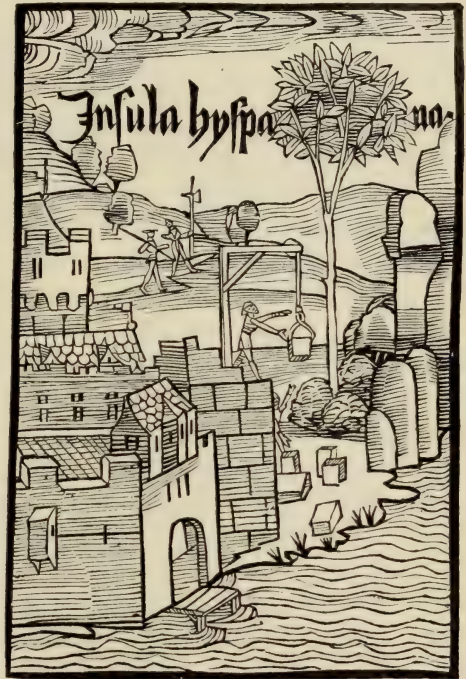 Insula hyspa na.